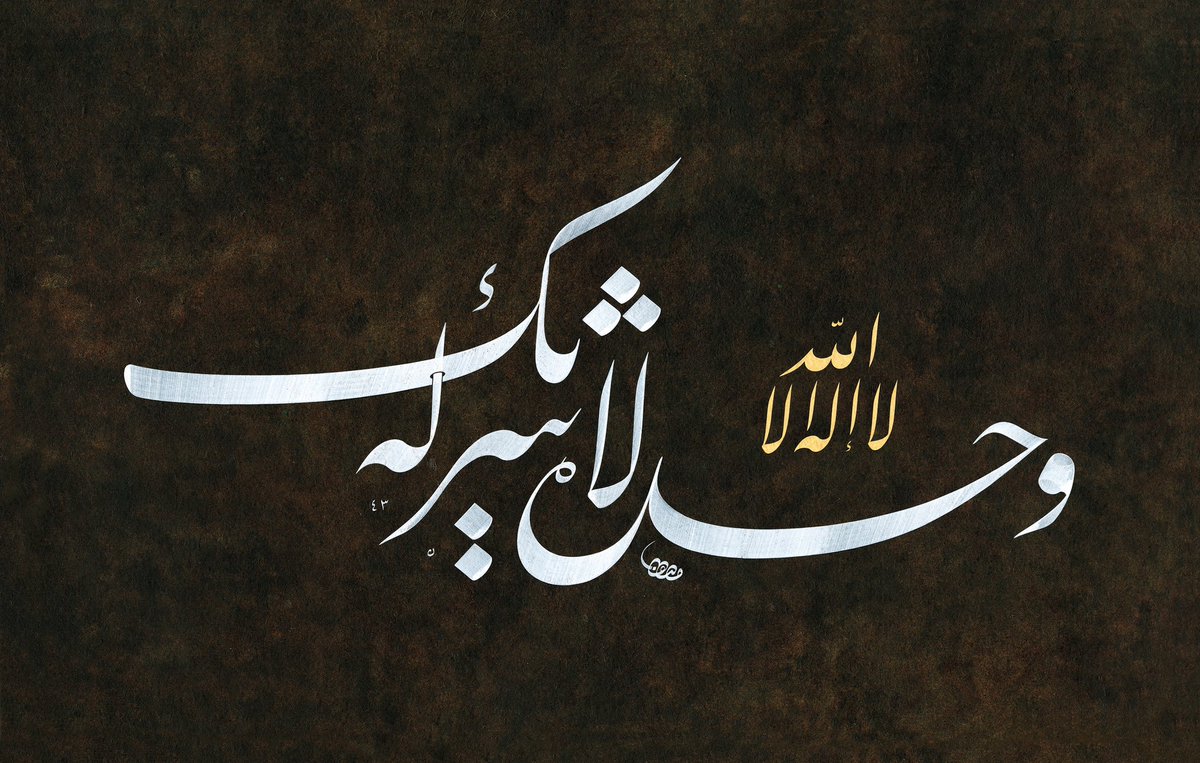 لا إله إلا الله
وحده لا شريك له
٤٣